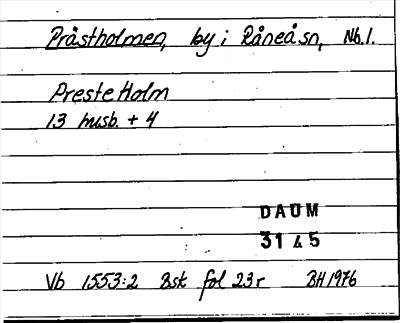 Pråstholmen, by i Råneå sn, Nb.l.
Preste Holm
13 husb. + 4
DAUM
31 & 5
Vb 1553:2 Bsk fol 23r BH 1976